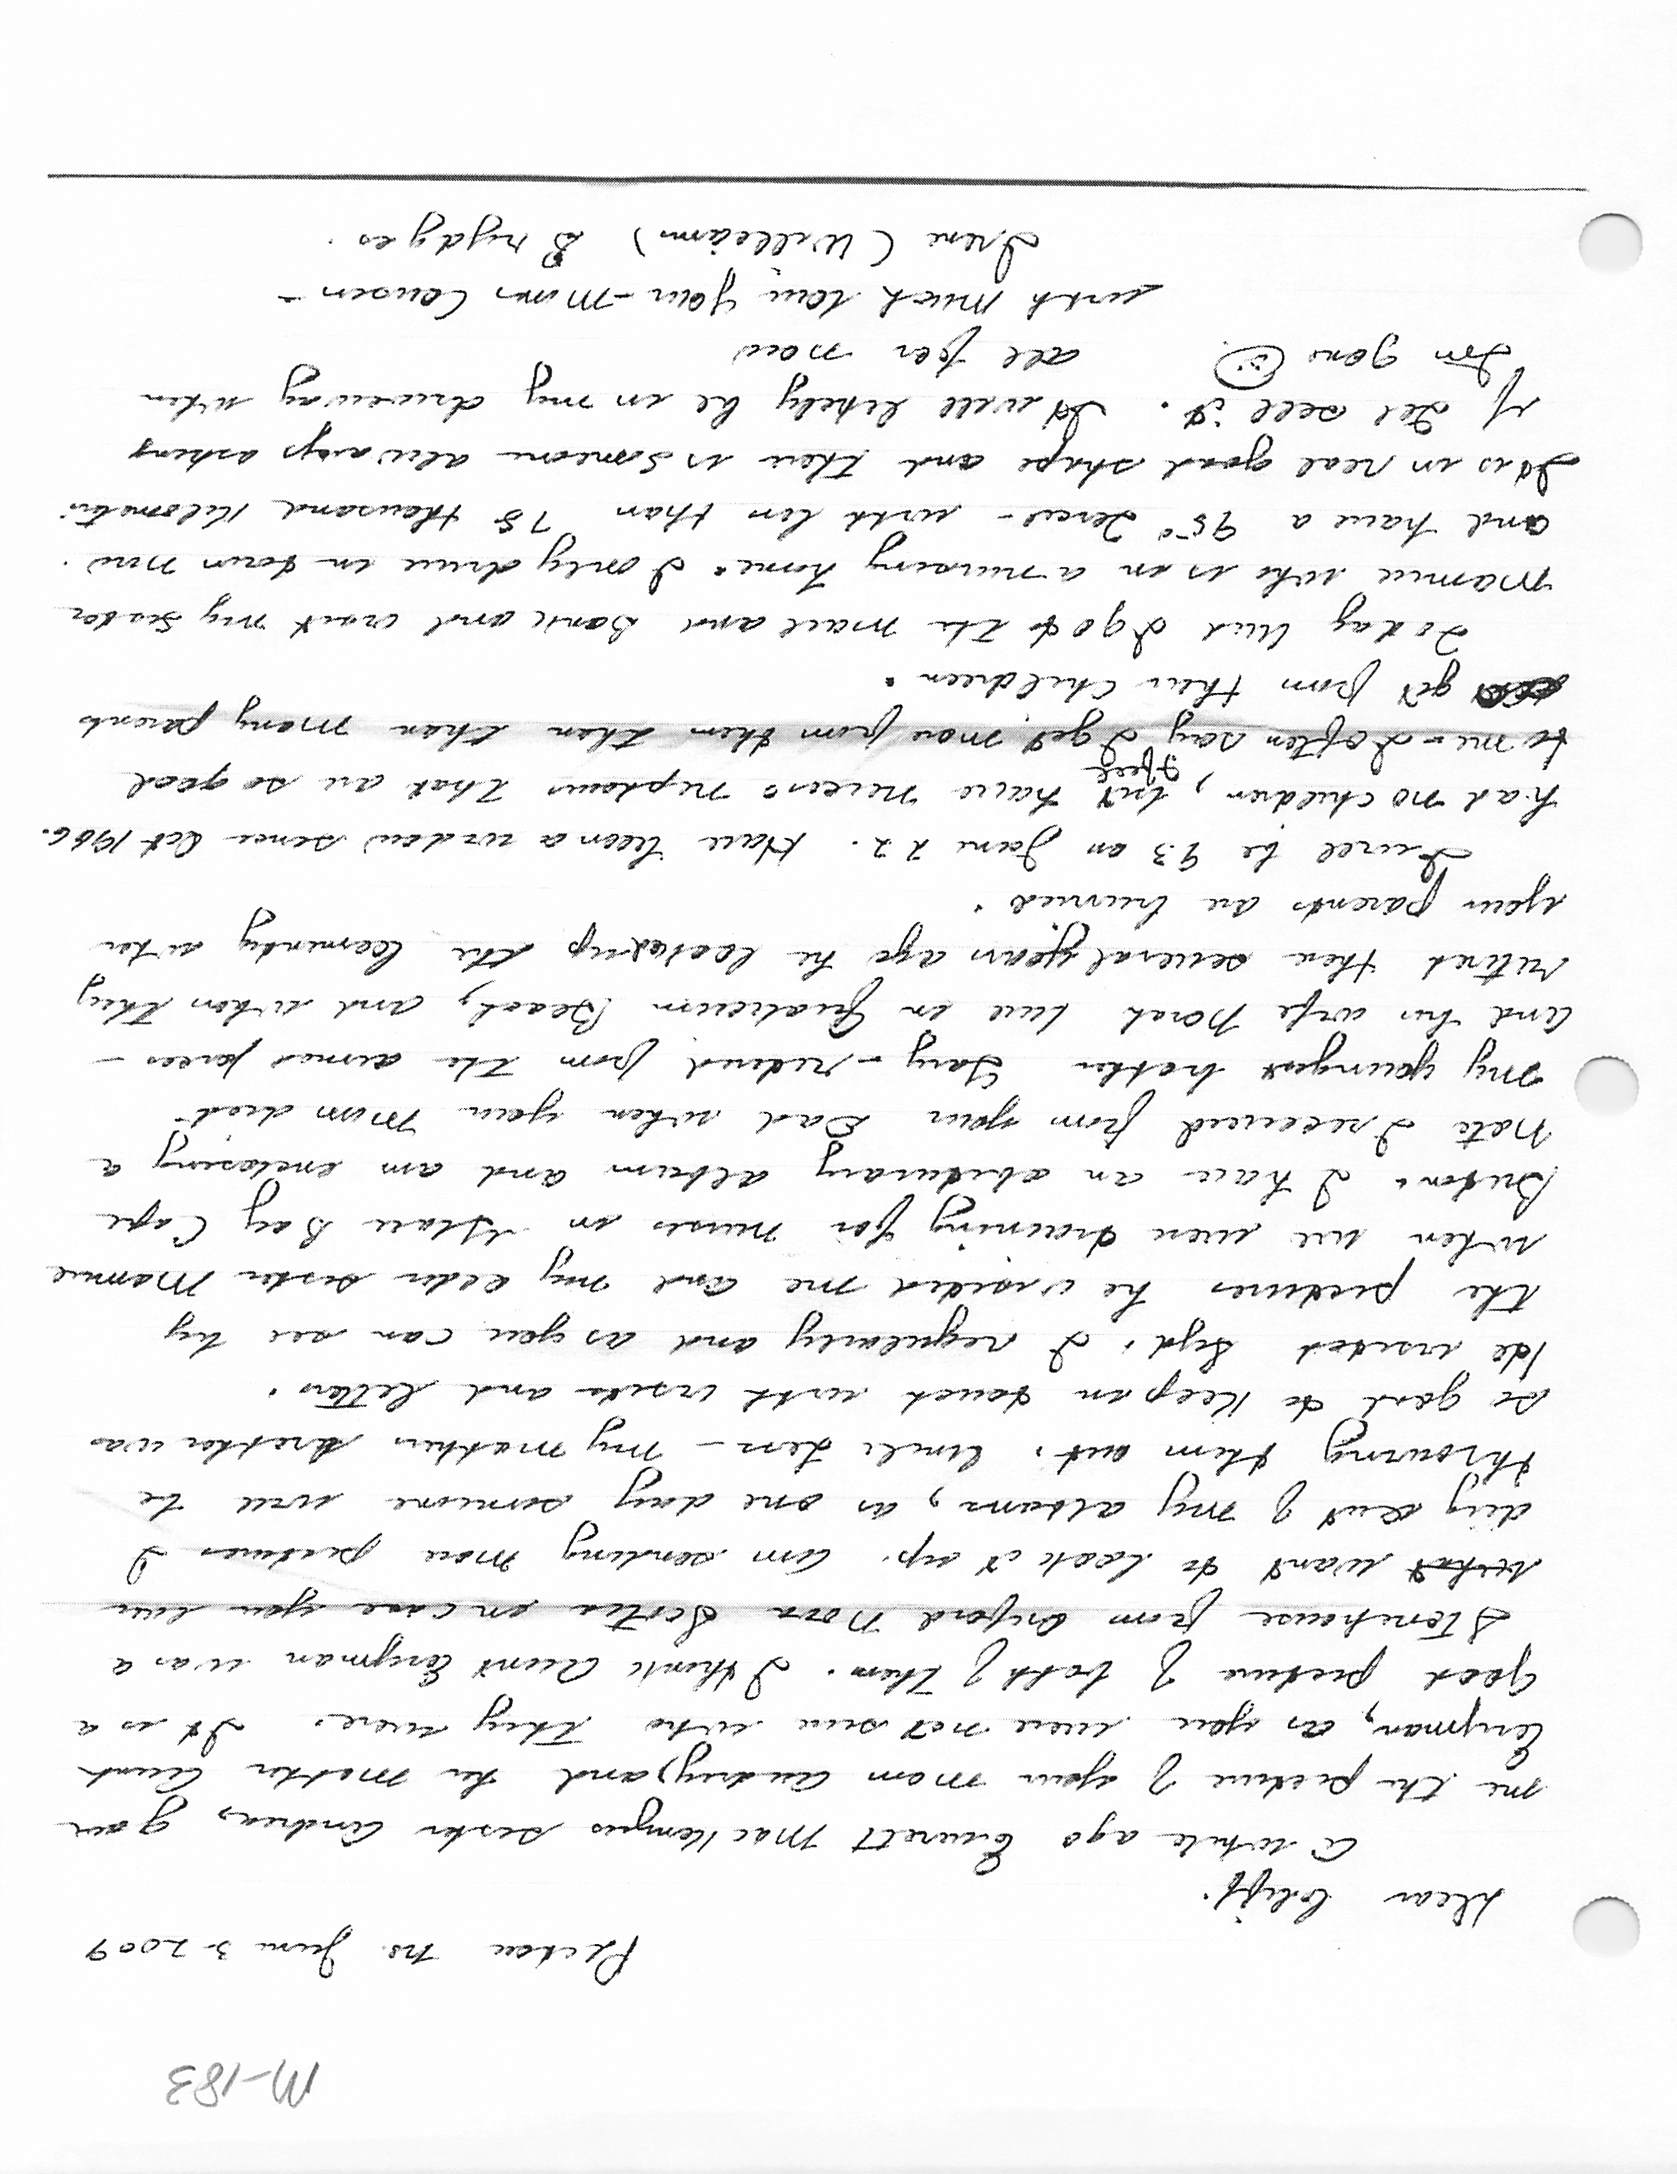 M-183
Pictou N.S. June 3-2009
Dear Cliff.
A while ago Everett MacKenzies sister Andrea, gave
me the picture of your mom Audrey, and her mother Aunt
as you were not sure who they were. It is a
Good picture of both of them. I think Aunt was a
Stonehouse from Oxford Nova Scotia in case you ever
want to look it up. Am sending more pictures I
dug out of my albums, as one day someone will be
throwing them out. Uncle Less - my mothers brother was
so good to keep in touch with visits and letters.
He visited Syd. & I regularly and as you can see by
the pictures he visited me and my older sister Mamie
when we were training for nurses in Glace Bay Cape
Breton. I have an obiturary album and am enclosing a
note I received from your Dad when your Mom died.
My youngest brother Gary - retired from the armed forces -
and his wife Norah live in Qualicum Beach, and when they
retired there several years ago he looked up the cemintry where
your parents are burried.
I will be 93 on June 22. Have been a widow since Oct 1986.
had no children, but have neices & nephews that are so good
to me - I often say I feel I get more from them than many parents
get from their children.
Today but I got the mail and Bank and visit my sister
Mamie who is in a nursing home. I only drive in town now.
and have a 95 - with less than 78 thousand Kilometers
It is in real good shape and there is someone always asking
if I'll sell it. It will likely be in my driveway when
I'm gone ☺. all for now
with much love your - Moms Cousin -
Irene (William) Brydges.